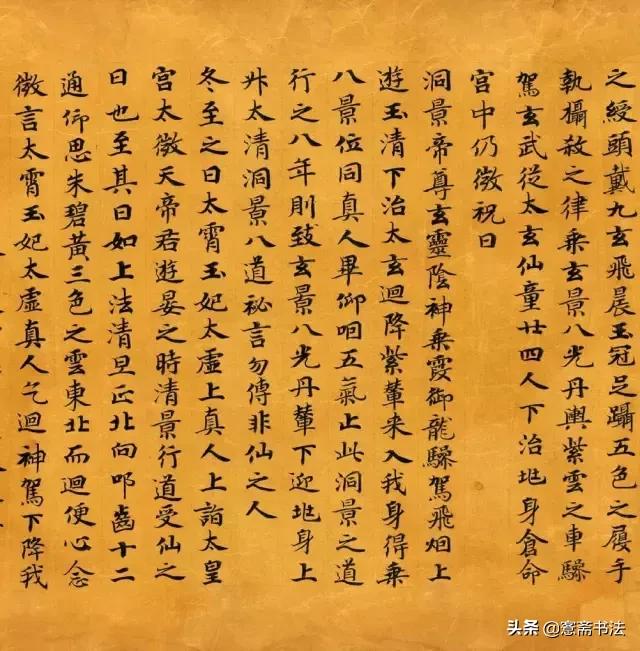 之綬頭戴九玄飛晨玉冠足躡五色之履手
執攝殺之律乘玄景八光丹輿紫雲之車驂
駕玄武從太玄仙童廿四人下治地身倉命
宮中仍微祝曰
洞景帝尊玄靈陰神乘霞御龍驂駕飛烟上
遊玉清下治太玄迴降紫輦来入我身得乗
八景位同真人畢仰咽五氣止此洞景之道
行之八年則致玄景八光丹輦下迎地身上
升太清洞景八道祕言勿傳非仙之人
冬至之日太霄玉妃太虛上真人上詣太皇
宮太微天帝君遊宴之時清景行道受仙之
日也至其日如上法清旦正北向叩齒十二
通仰思朱碧黃三色之雲東北而迴便心念
微言太霄玉妃太虛真人乞迴神駕下降我
头条 @窓斋书法